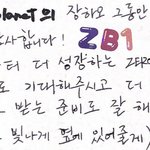 planet의 장하오 그동안
사합니다! ZB1
터 더 성장하는 ZERO
로 기대해주시고 더
받는 준비로 잘 해
빛나게 옆에 있어줄게)